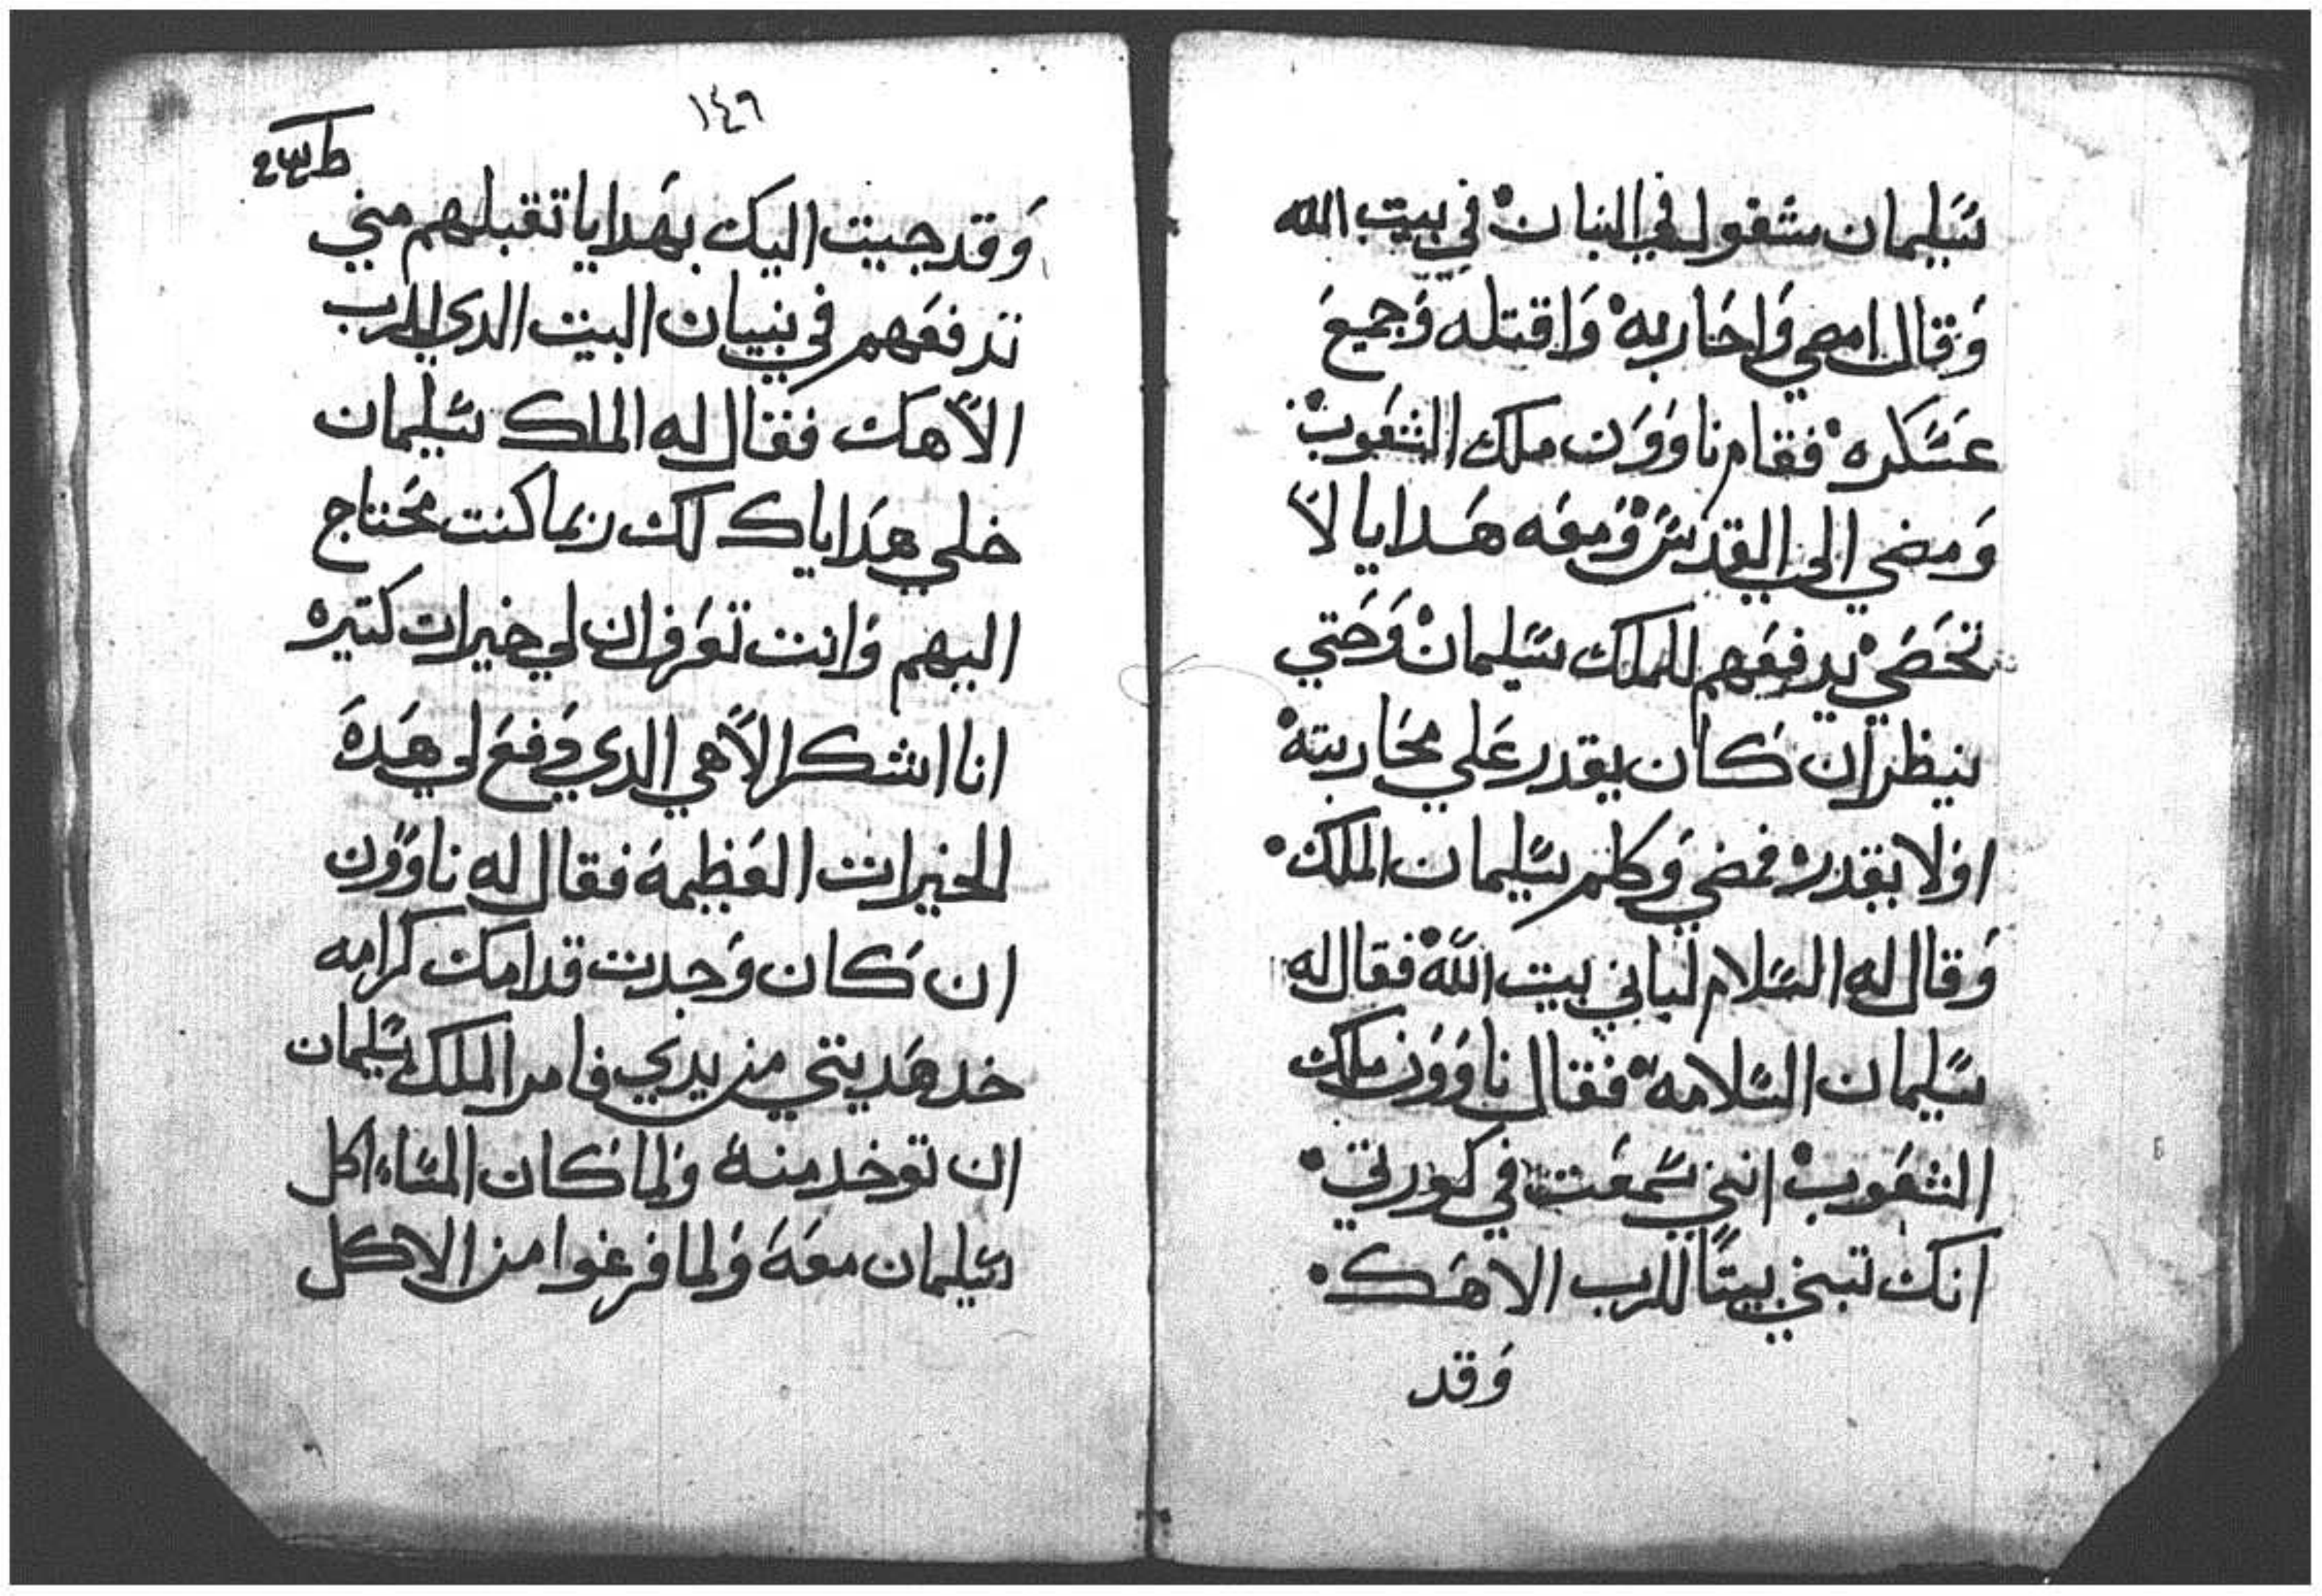 سليمان مشغول في البنيان في بيت الله
وَقال امضي وَاحاربه وَاقتله وَجميع
عسكره فقام ناوَوَن ملك الشعوب
وَمضي الي القدس وَمعه هدايا لا
تحصي يدفعهم للملك سليمان وَحتي
ينظر ان كان يقدر علي محاربته
اوَلا يقدر فمضي وَكلم سليمان الملك
وَقال له السلام لباني بيت الله فقال له
سليمان السلامه فقال ناوَوَن ملك
الشعوب انني سمعت في كورتي
انك تبني بيتًا للرب الاهك
وَقد
١٤٩
وَقد جيت اليك بهدايا تقبلهم مني
تدفعهم في بنيان البيت الدي للرب
الاهك فقال له الملك سليمان
خلي هداياك لك ربما كنت محتاج
اليهم وَانت تعرف ان لي خيرات كتيره
انا اشكر الاهي الدي دفع لي هده
الخيرات العظيمه فقال له ناوَوَن
ان كان وَجدت قدامك كرامه
خد هديتي من يدي فامر الملك سليمان
ان توخد منه وَلما كان المساء اكل
سليمان معه وَلما فرغوا من الاكل